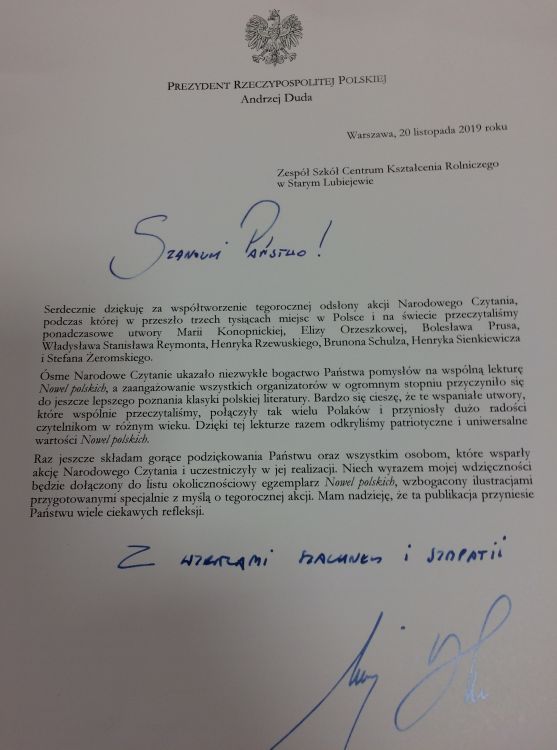 PREZYDENT RZECZYPOSPOLITEJ POLSKIEJ
Andrzej Duda
Warszawa, 20 listopada 2019 roku
Zespół Szkół Centrum Kształcenia Rolniczego
w Starym Lubiejewie
Szanowni Państwo!
Serdecznie dziękuję za współtworzenie tegorocznej odsłony akcji Narodowego Czytania,
podczas której w przeszło trzech tysiącach miejsc w Polsce i na świecie przeczytaliśmy
ponadczasowe utwory Marii Konopnickiej, Elizy Orzeszkowej, Bolesława Prusa,
Władysława Stanisława Reymonta, Henryka Rzewuskiego, Brunona Schulza, Henryka Sienkiewicza
i Stefana Żeromskiego.
Ósme Narodowe Czytanie ukazało niezwykłe bogactwo Państwa pomysłów na wspólną lekturę
Nowel polskich, a zaangażowanie wszystkich organizatorów w ogromnym stopniu przyczyniło się
do jeszcze lepszego poznania klasyki polskiej literatury. Bardzo się cieszę, że te wspaniałe utwory,
które wspólnie przeczytaliśmy, połączyły tak wielu Polaków i przyniosły dużo radości
czytelnikom w różnym wieku. Dzięki tej lekturze razem odkryliśmy patriotyczne i uniwersalne
wartości Nowel polskich.
Raz jeszcze składam gorące podziękowania Państwu oraz wszystkim osobom, które wsparły
akcję Narodowego Czytania i uczestniczyły w jej realizacji. Niech wyrazem mojej wdzięczności
będzie dołączony do listu okolicznościowy egzemplarz Nowel polskich, wzbogacony ilustracjami
przygotowanymi specjalnie z myślą o tegorocznej akcji. Mam nadzieję, że ta publikacja przyniesie
Państwu wiele ciekawych refleksji.
Z wyrazami szacunku i sympatii